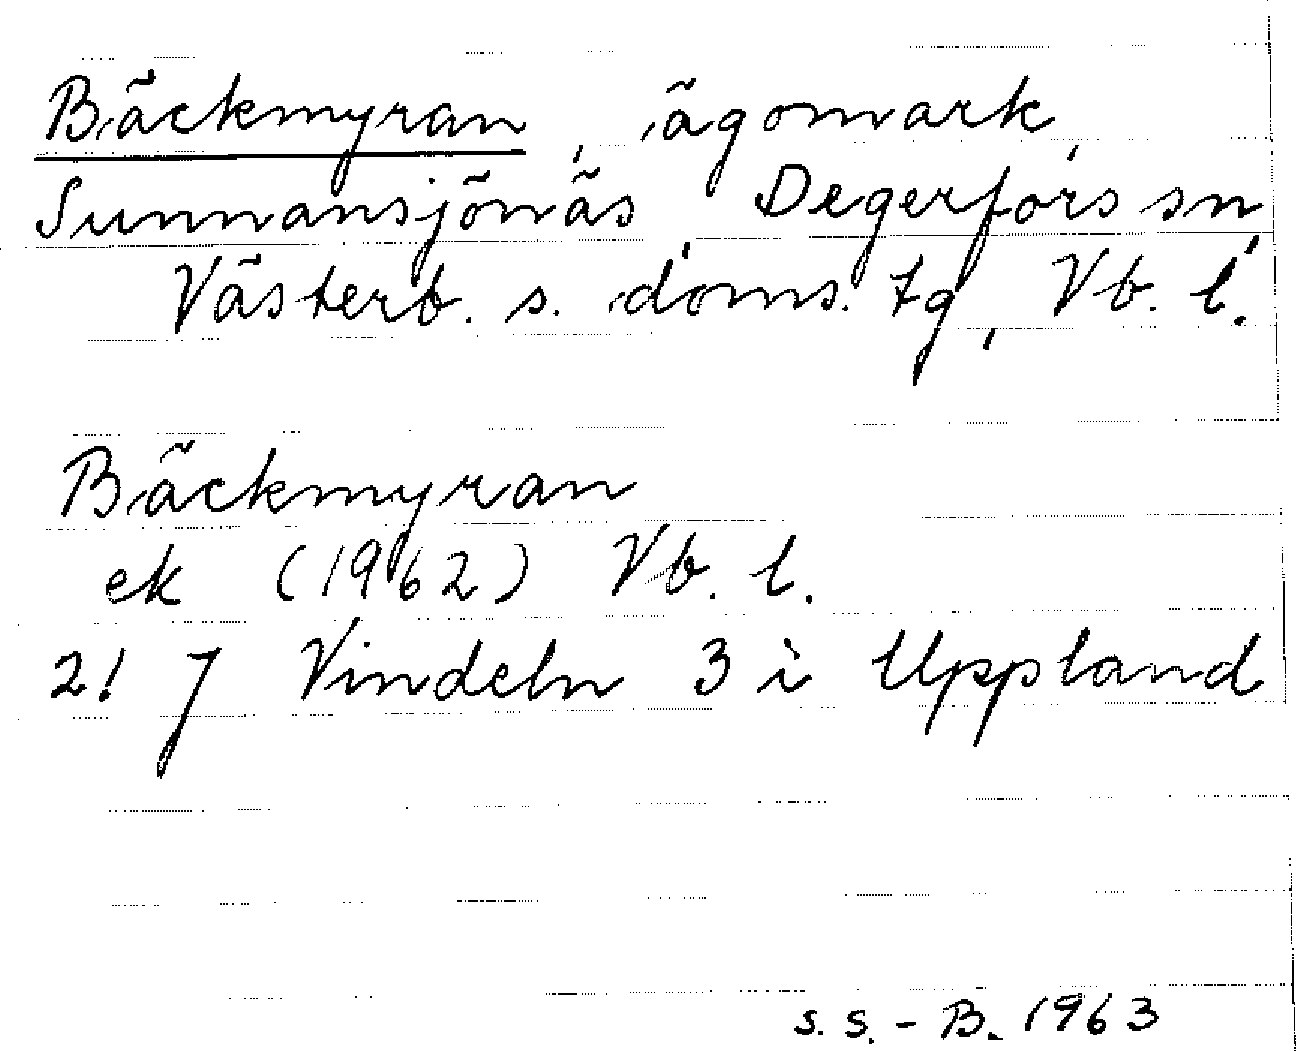 Bäckmyran, ägomark,
Sunnansjönäs, Degerfors sn,
Västerb. s. doms. tg, Vb. l.
Bäckmyran
ek (1962) Vb. l.
2! J Vindeln 3 i Uppland
s. s. - B. 1963